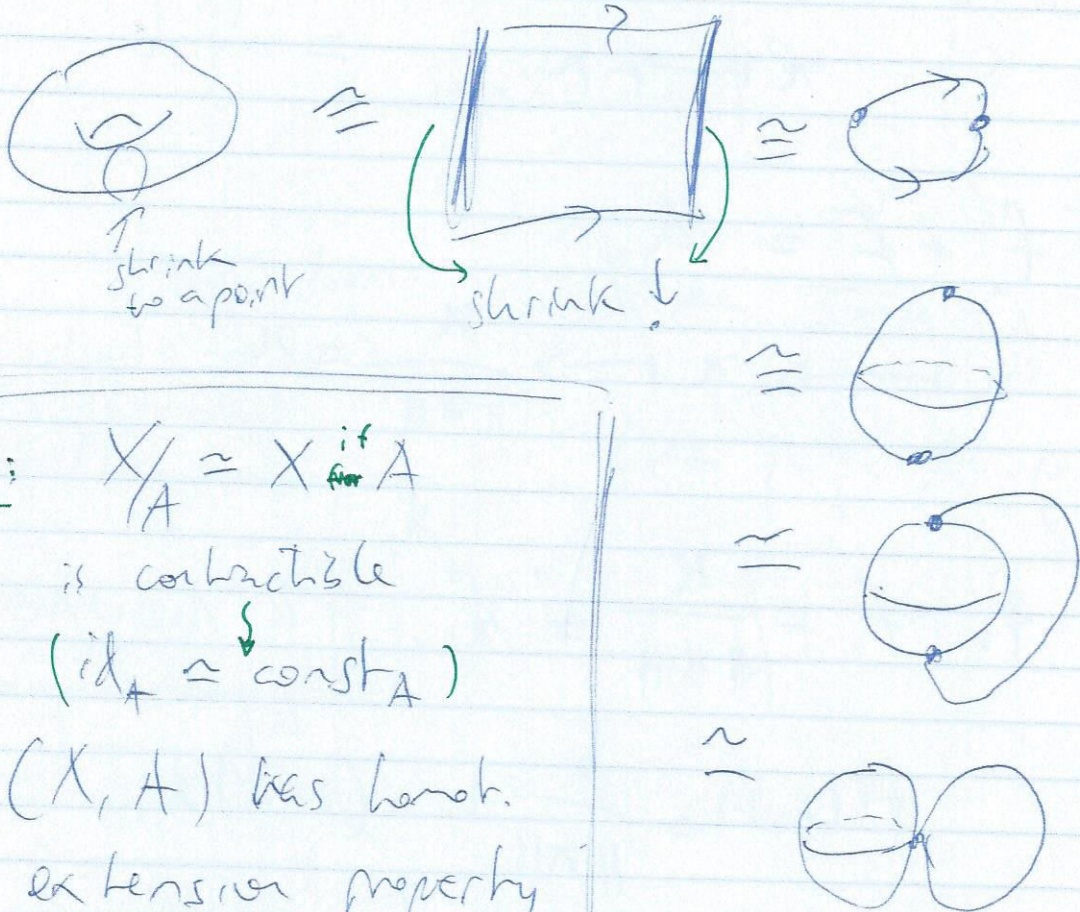 ≅
≅
shrink
to a point
shrink!
≅
: X/A ≃ X if A
is contractible
≃
(id_A ≃ const_A)
≃
(X, A) has homot.
extension property